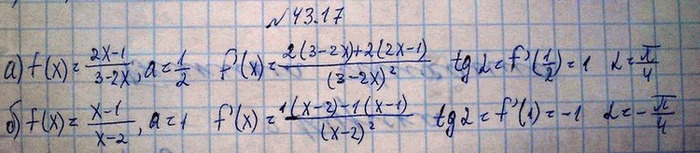 №43.17
а) f(x) = \frac{2x-1}{3-2x}, a = \frac{1}{2} f'(x) = \frac{2(3-2x)+2(2x-1)}{(3-2x)^2} tg α = f'(\frac{1}{2}) = 1 α = \frac{π}{4}
б) f(x) = \frac{x-1}{x-2}, a = 1 f'(x) = \frac{1(x-2)-1(x-1)}{(x-2)^2} tg α = f'(1) = -1 α = -\frac{π}{4}